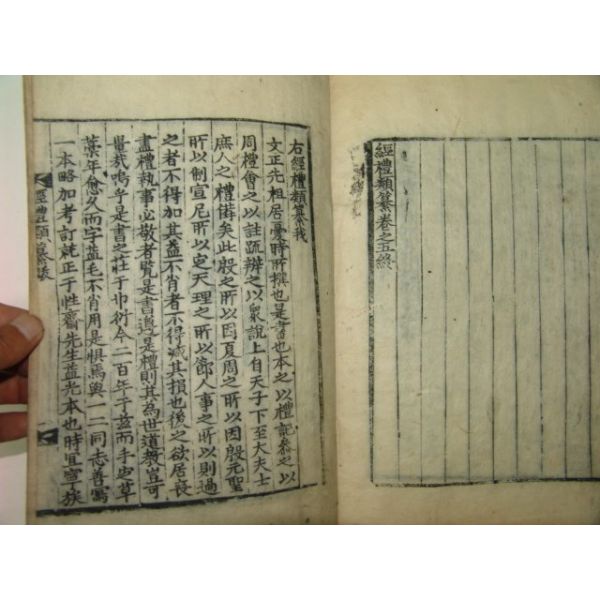 經禮類纂卷之五終
右經禮類纂我
文正先祖居憂時所撰也是書也本之以禮記參之以
周禮會之以註疏辨之以衆說上自天子下至大夫士
庶人之禮備矣此殷之所以因夏周之所以因殷元聖
所以制宣尼所以定天理之所以節人事之所以則過
之者不得加其益不肖者不得減其損也後之欲居喪
盡禮執事必敬者覽是書遵是禮則其為世道教豈可
量哉嗚乎是書之莊于巾衍今二百年于玆而手史草
藁年愈久而字益毛不肖用是惧焉與一二同志善寫
一本略加考訂就正于性齋先生益光本也時宜寧族
經禮類纂跋